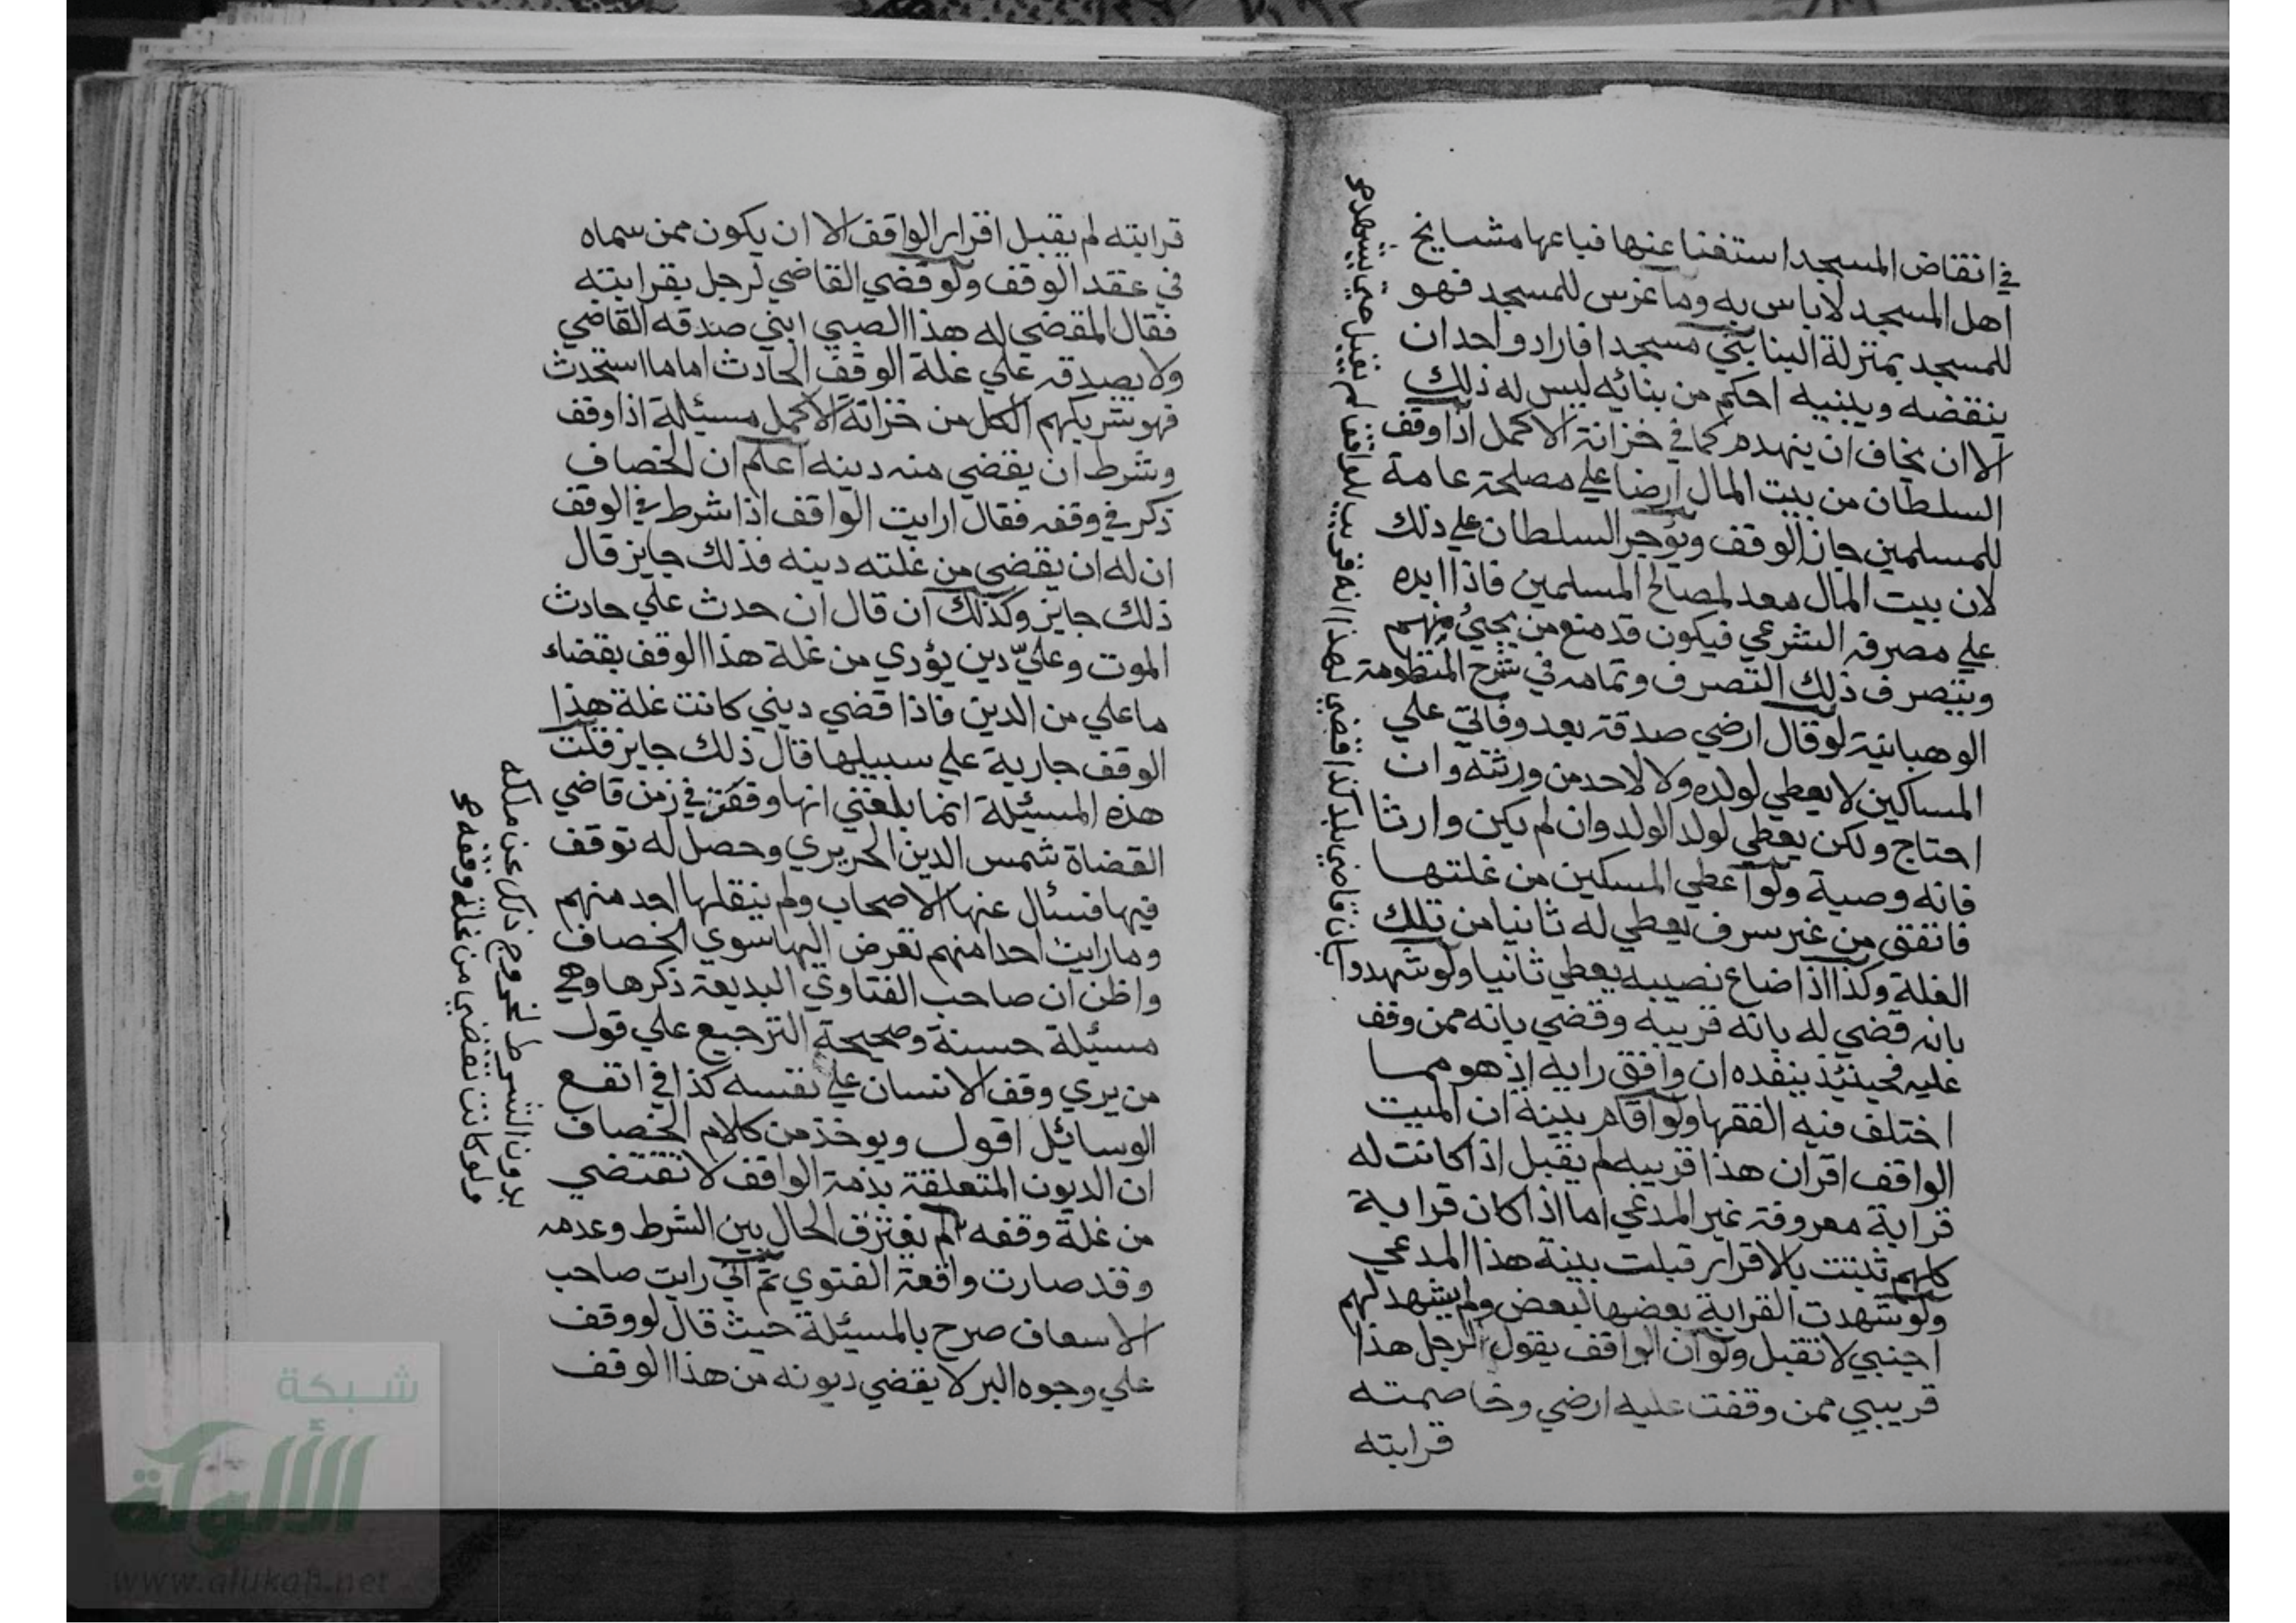 في انقاض المسجد استغنا عنها فباعها مشايخ
اهل المسجد لاباس به وما غرس للمسجد فهو
للمسجد بمنزلة البنا بني مسجدا فاراد واحد ان
ينقضه ويبنيه احكم من بنائه ليس له ذلك
الا ان يخاف ان ينهدم كما في خزانة الاكمل اذا وقف
السلطان من بيت المال ارضا علي مصلحة عامة
للمسلمين جاز الوقف ويؤجر السلطان علي ذلك
لان بيت المال معد لمصالح المسلمين فاذا ابده
علي مصرفه الشرعي فيكون قد منع من يجيئ منهم
ويتصرف ذلك التصرف وتمامه في شرح المنظومة
الوهبانية لو قال ارضي صدقة بعد وفاتي علي
المساكين لا يعطي لولده ولا لاحد من ورثته وان
احتاج ولكن يعطي لولد الولد وان لم يكن وارثا
فانه وصية ولو اعطي المسكين من غلتها
فانفق من غير سرف يعطي له ثانيا من تلك
الغلة وكذا اذا ضاع نصيبه يعطي ثانيا ولو شهدوا
بانه قضي له بانه قريبه وقضي بانه ممن وقف
عليه فحينئذ ينفذه ان وافق رايه اذ هو مما
اختلف فيه الفقها ولو اقام بينة ان الميت
الواقف اقر ان هذا قريبه لم يقبل اذا كانت له
قرابة معروفة غير المدعي اما اذا كان قرابة
كلهم ثبتت بالاقرار قبلت بينة هذا المدعي
ولو شهدت القرابة بعضها لبعض ولم يشهد لهم
اجنبي لا تقبل ولو ان الواقف يقول لرجل هذا
قريبي ممن وقفت عليه ارضي وخاصمته
قرابته
بان قاضي بلد كذا قضي لهذا انه قريب الواقف لم يقبل حتي يشهدوا
قرابته لم يقبل اقرار الواقف الا ان يكون ممن سماه
في عقد الوقف ولو قضي القاضي لرجل بقرابته
فقال المقضي له هذا الصبي ابني صدقه القاضي
ولا يصدقه علي غلة الوقف الحادث اما ما استحدث
فهو شريكهم الكل من خزانة الاكمل مسيئلة اذا وقف
وشرط ان يقضي منه دينه اعلم ان الخصاف
ذكر في وقفه فقال ارايت الواقف اذا شرط في الوقف
ان له ان يقضي من غلته دينه فذلك جايز قال
ذلك جايز وكذلك ان قال ان حدث علي حادث
الموت وعليّ دين يؤدي من غلة هذا الوقف بقضاء
ما علي من الدين فاذا قضي ديني كانت غلة هذا
الوقف جارية علي سبيلها قال ذلك جايز قلت
هذه المسيئلة انما بلغني انها وقعت في زمن قاضي
القضاة شمس الدين الحريري وحصل له توقف
فيها فسئال عنها الاصحاب ولم ينقلها احد منهم
وما رايت احدا منهم تعرض اليها سوي الخصاف
واظن ان صاحب الفتاوي البديعة ذكرها وهي
مسيئلة حسنة وصحيحة الترجيع علي قول
من يري وقف الانسان علي نفسه كذا في انفع
الوسائيل اقول ويوخذ من كلام الخصاف
ان الديون المتعلقة بذمة الواقف لا تقتضي
من غلة وقفه لم يفترق الحال بين الشرط وعدمه
وقد صارت واقعة الفتوي ثم اني رايت صاحب
الاسعاف صرح بالمسيئلة حيث قال لو وقف
علي وجوه البر لا يقضي ديونه من هذا الوقف
بدون الشرط لخروج ذلك عن ملكه
ولو كانت تقتضي من غلة وقفه
شبكة
الألوكة
www.alukah.net